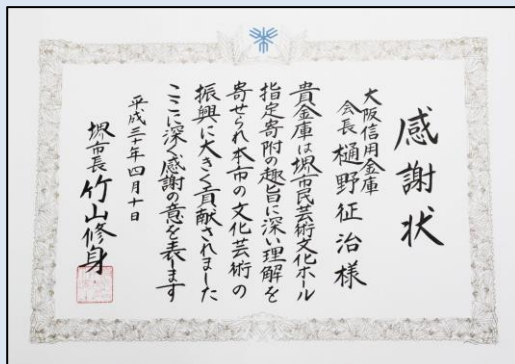 感謝状
大阪信用金庫
会長 樋野征治様
貴金庫は堺市民芸術文化ホール
指定寄附の趣旨に深い理解を
寄せられ本市の文化芸術の
振興に大きく貢献されました
ここに深く感謝の意を表します
平成三十年四月十日
堺市長 竹山修身